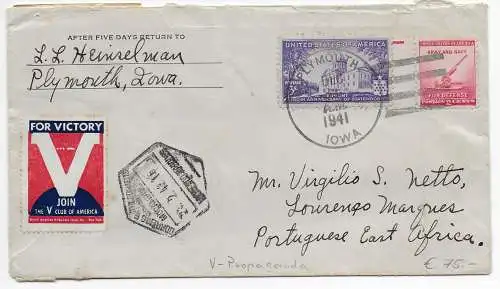 AFTER FIVE DAYS RETURN TO
L. L. Heinselman
Plymouth, Iowa.
UNITED STATES OF AMERICA
3¢
150TH ANNIVERSARY OF STATEHOOD
FOR DEFENSE
PLYMOUTH
1941
IOWA
FOR VICTORY
V
JOIN
THE V CLUB OF AMERICA
Mr. Virgilio S. Netto,
Lourenço Marques
Portuguese East Africa.
V-Propaganda
€ 75.-